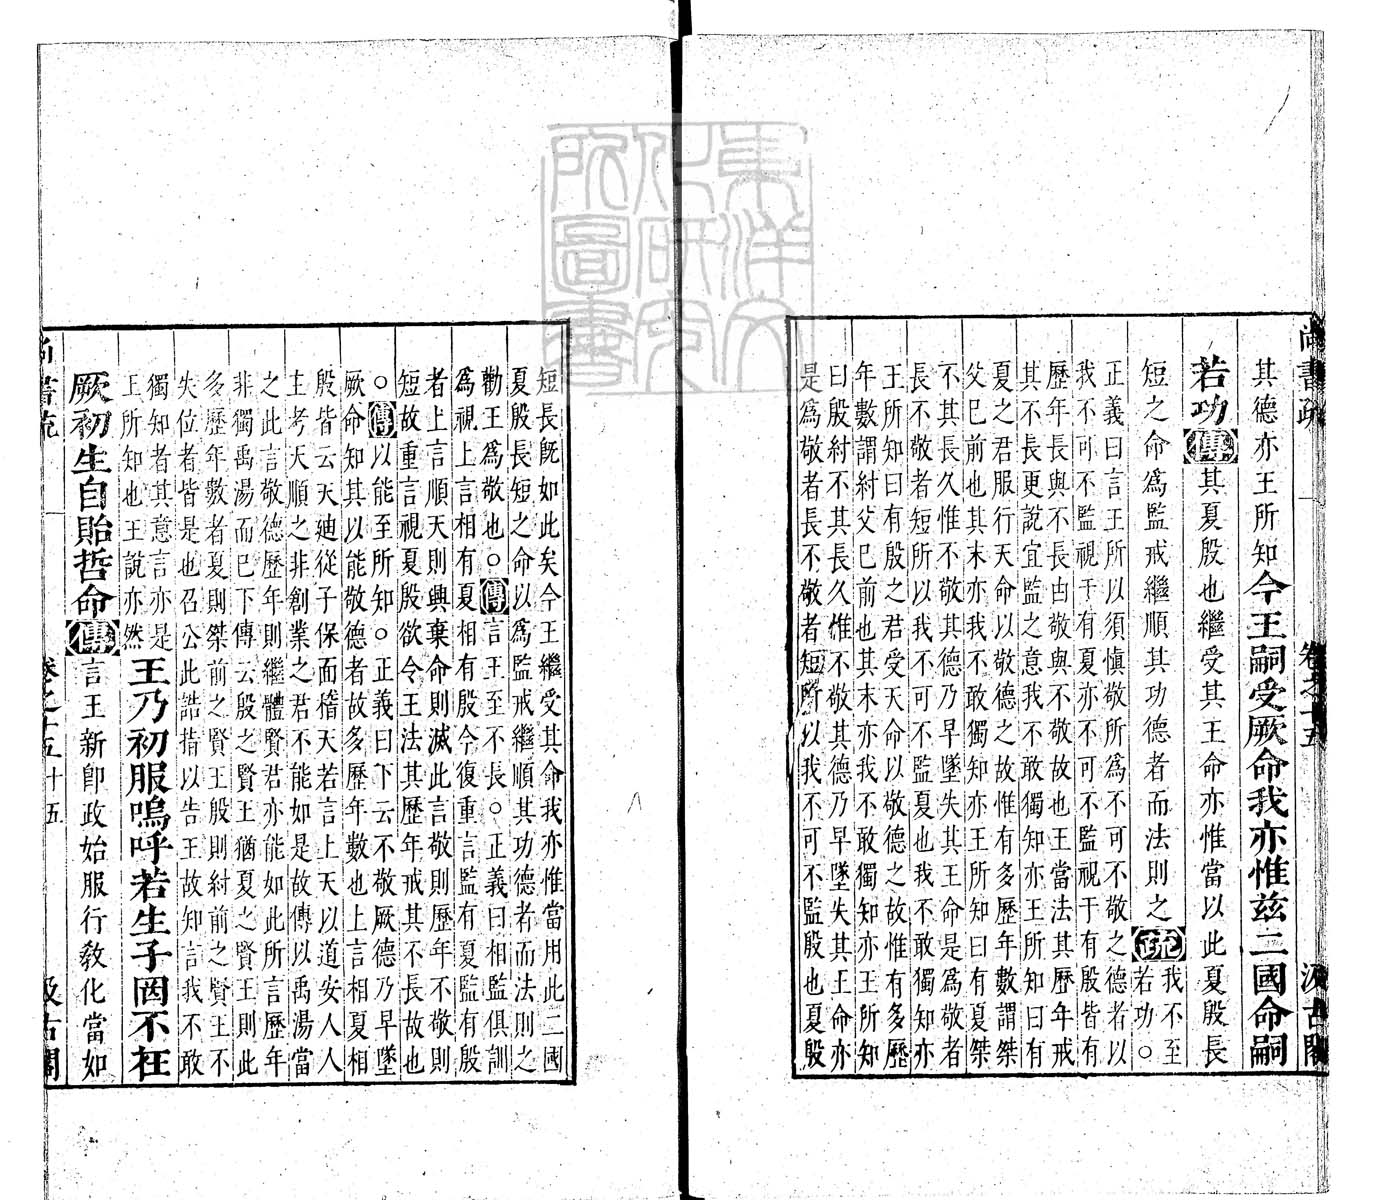 尚書疏 卷之十五 汲古閣
其德亦王所知今王嗣受厥命我亦惟兹二國命嗣
若功傳其夏殷也繼受其王命亦惟當以此夏殷長
短之命爲監戒繼順其功德者而法則之疏我不至
若功○
正義曰言王所以須慎敬所爲不可不敬之德者以
我不可不監視于有夏亦不可不監視于有殷皆有
歷年長與不長由敬與不敬故也王當法其歷年戒
其不長更說宜監之意我不敢獨知亦王所知曰有
夏之君服行天命以敬德之故惟有多歷年數謂桀
父已前也其末亦我不敢獨知亦王所知曰有夏桀
不其長久惟不敬其德乃早墜失其王命是爲敬者
長不敬者短所以我不可不監夏也我不敢獨知亦
王所知曰有殷之君受天命以敬德之故惟有多歷
年數謂紂父已前也其末亦我不敢獨知亦王所知
曰殷紂不其長久惟不敬其德乃早墜失其王命亦
是爲敬者長不敬者短所以我不可不監殷也夏殷
東洋文
化研究
所圖書
短長旣如此矣今王繼受其命我亦惟當用此二國
夏殷長短之命以爲監戒繼順其功德者而法則之
勸王爲敬也○傳言王至不長○正義曰相監俱訓
爲視上言相有夏相有殷今復重言監有夏監有殷
者上言順天則興棄命則滅此言敬則歷年不敬則
短故重言視夏殷欲令王法其歷年戒其不長故也
○傳以能至所知○正義曰下云不敬厥德乃早墜
厥命知其以能敬德者故多歷年數也上言相夏相
殷皆云天迪從子保面稽天若言上天以道安人人
主考天順之非創業之君不能如是故傳以禹湯當
之此言敬德歷年則繼體賢君亦能如此所言歷年
非獨禹湯而已下傳云殷之賢王猶夏之賢王則此
多歷年數者夏則桀前之賢王殷則紂前之賢王不
失位者皆是也召公此誥指以告王故知言我不敢
獨知者其意言亦是
王所知也王說亦然王乃初服嗚呼若生子罔不在
厥初生自貽哲命傳言王新卽政始服行敎化當如
尚書疏 卷之十五 十五 汲古閣